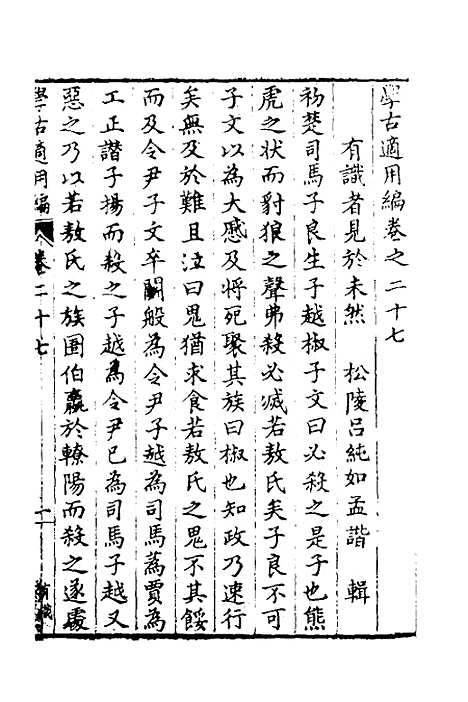 學古適用編卷之二十七
有識者見於未然 松陵呂純如孟諧 輯
初楚司馬子良生子越椒子文曰必殺之是子也熊
虎之狀而豺狼之聲弗殺必滅若敖氏矣子良不可
子文以為大慼及將死聚其族曰椒也知政乃速行
矣無及於難且泣曰鬼猶求食若敖氏之鬼不其餒
而及令尹子文卒鬭般為令尹子越為司馬蒍賈為
工正譖子揚而殺之子越為令尹己為司馬子越又
惡之乃以若敖氏之族圄伯嬴於轑陽而殺之遂處
學古適用編 卷二十七 一